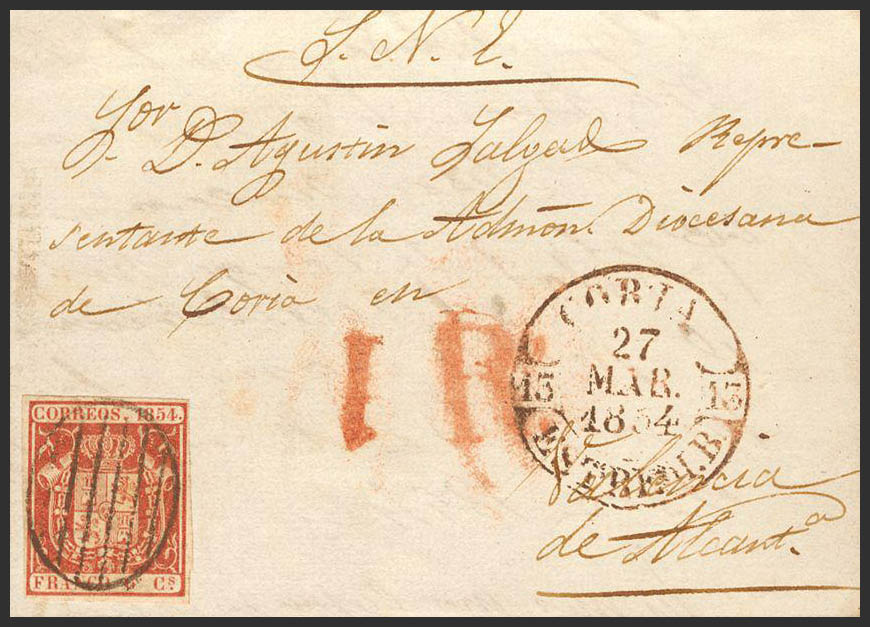 S. N. I.
Sor
D. Agustin Salgado Repre-
sentante de la Admōn. Diocesana
de Coria en
1 R.
CORIA
27
MAR.
1854
15 15
ESTREM. B.
Valencia
de Alcant.a
CORREOS. 1854.
FRANCO 6 Cs.